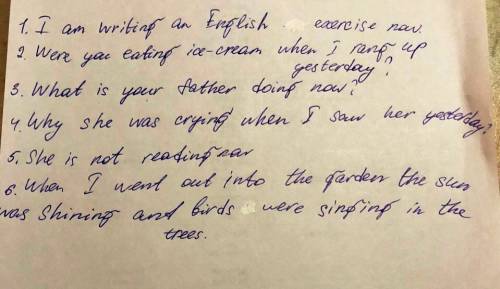 1. I am writing an English exercise now.
2. Were you eating ice-cream when I rang up
yesterday?
3. What is your father doing now?
4. Why she was crying when I saw her yesterday?
5. She is not reading now
6. When I went out into the garden the sun
was shining and birds were singing in the
trees.